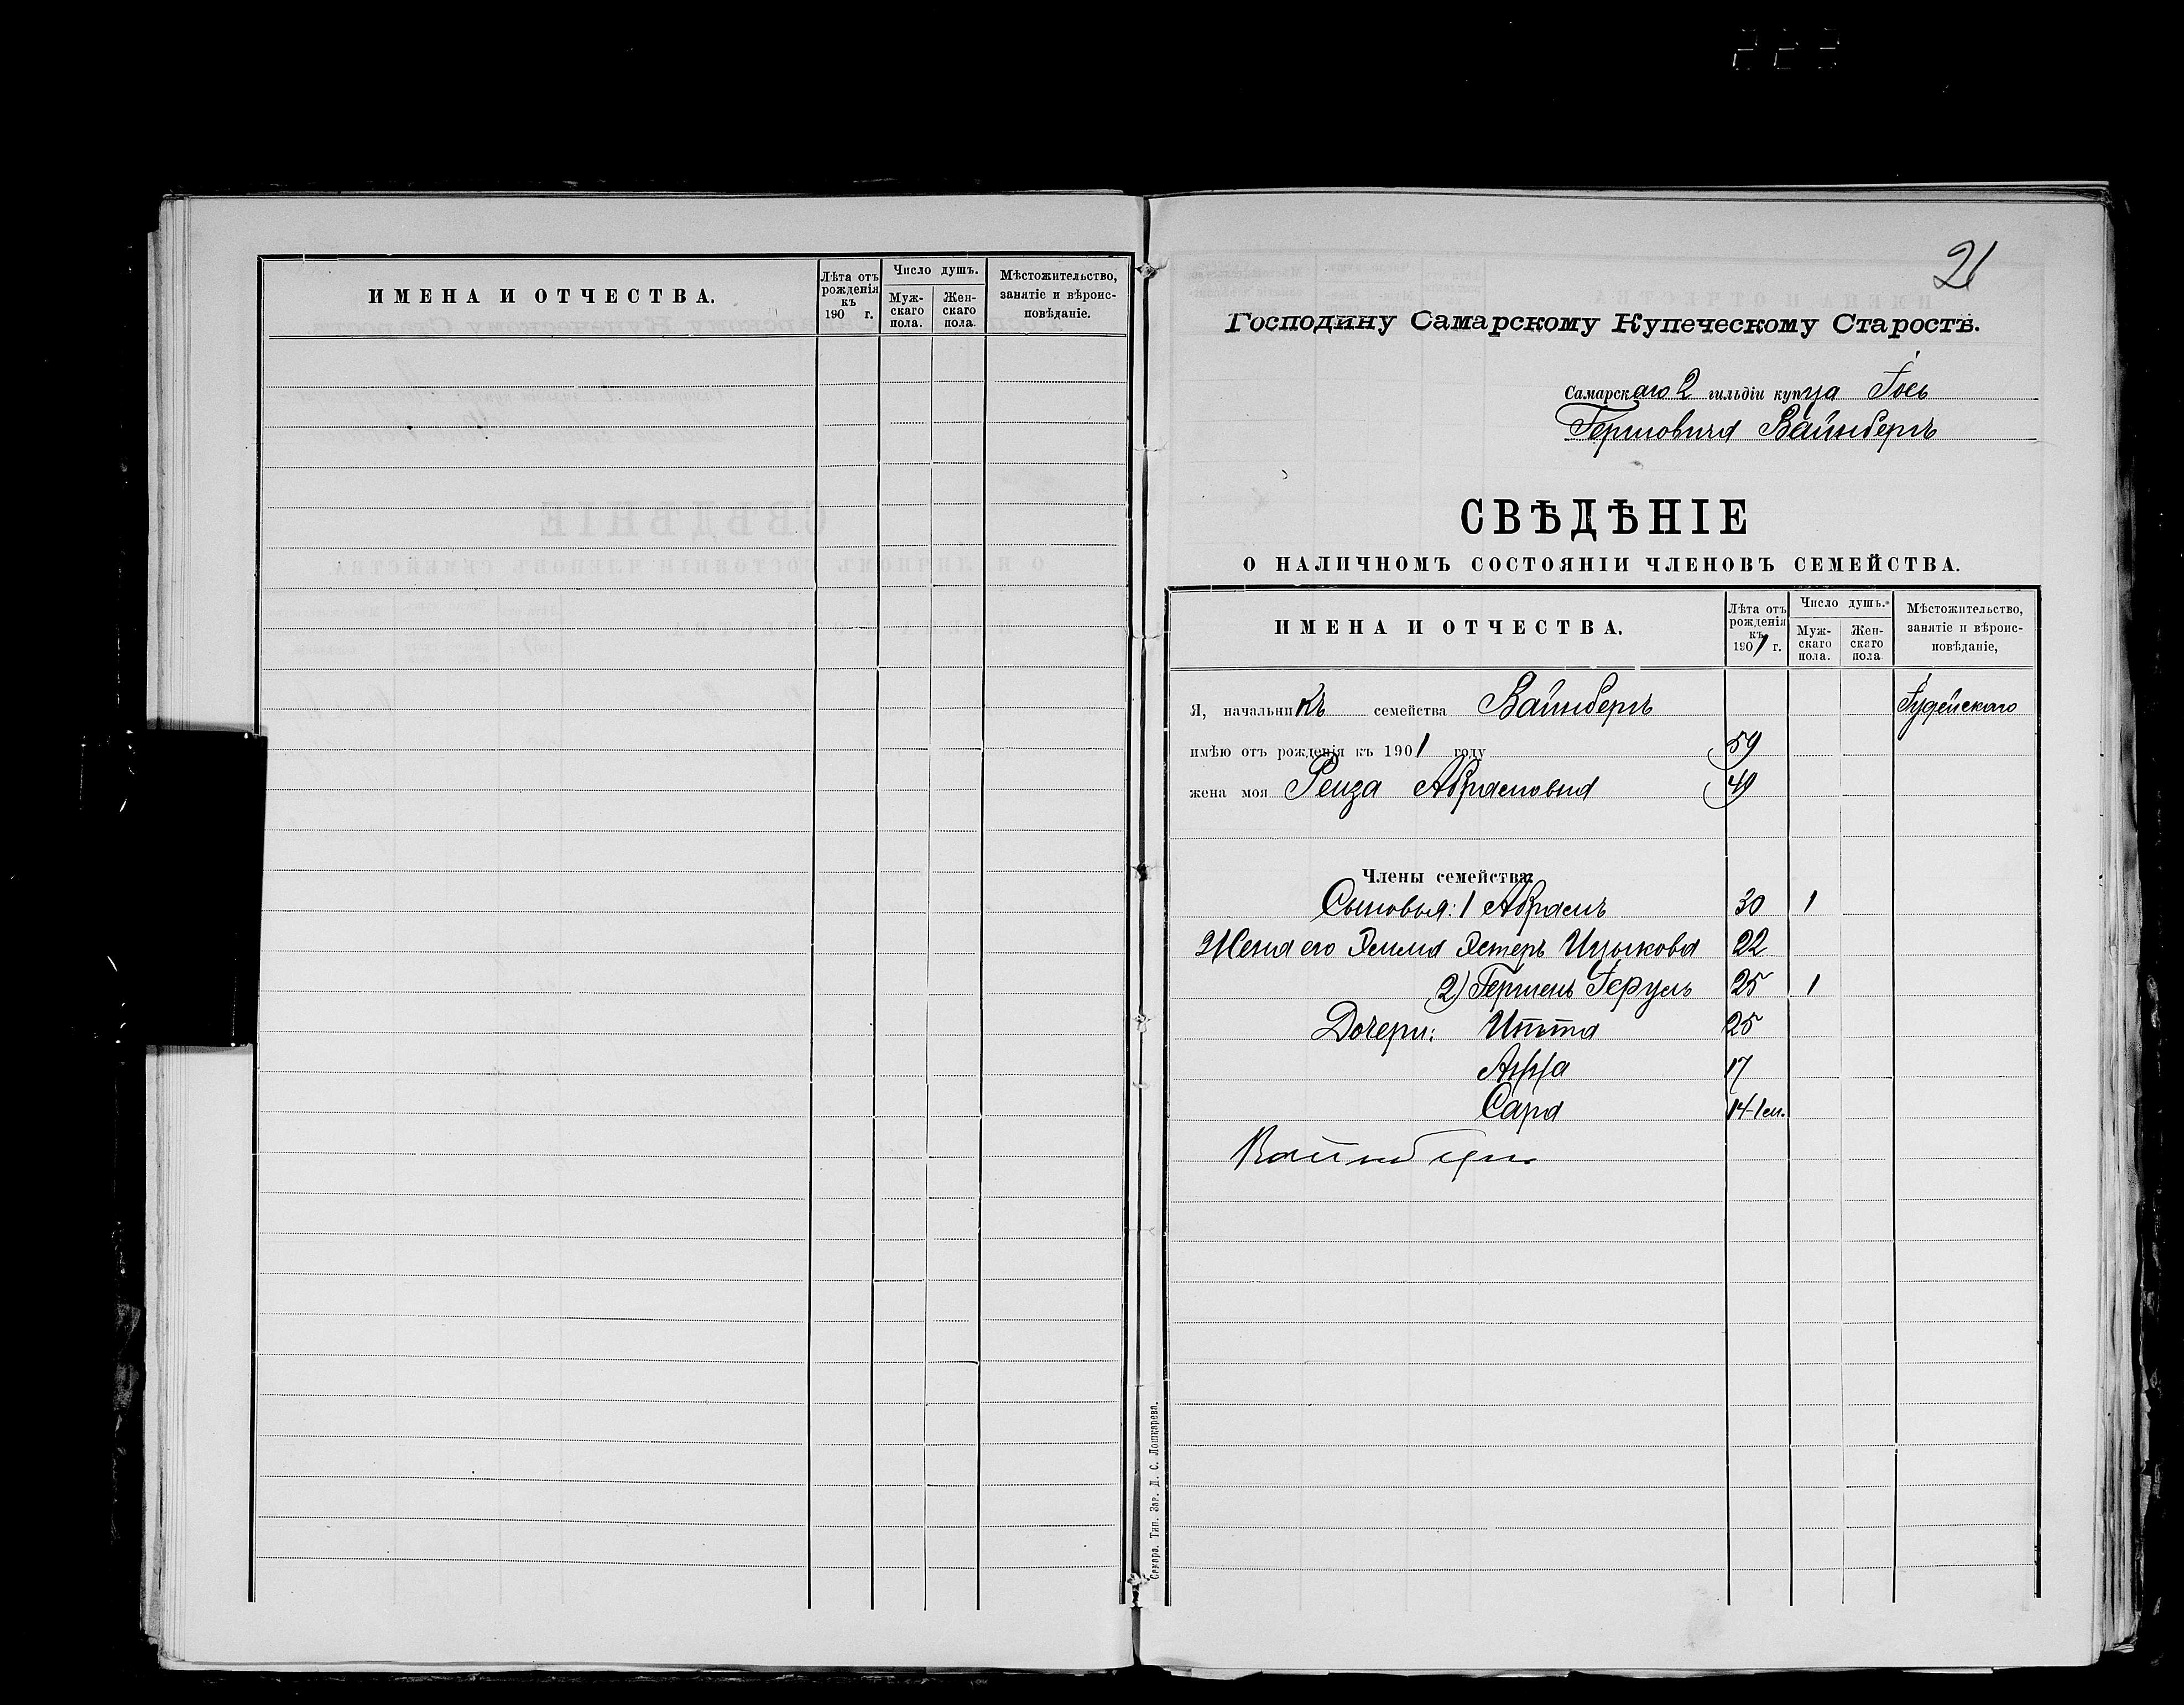 ИМЕНА И ОТЧЕСТВА.
Лѣта отъ рожденія къ 190 г.
Число душъ.
Муж-скаго пола.
Жен-скаго пола.
Мѣстожительство, занятіе и вѣроис-повѣданіе.
21
Господину Самарскому Купеческому Старостѣ.
Самарскаго 2 гильдіи купца Іось
Гершовича Вайнбергъ
СВѢДѢНІЕ
О НАЛИЧНОМЪ СОСТОЯНІИ ЧЛЕНОВЪ СЕМЕЙСТВА.
ИМЕНА И ОТЧЕСТВА.
Лѣта отъ рожденія къ 1901 г.
Число душъ.
Муж-скаго пола.
Жен-скаго пола
Мѣстожительство, занятіе и вѣроис-повѣданіе,
Я, начальникъ семейства Вайнбергъ Іудейскаго
имѣю отъ рожденія къ 1901 году 59
жена моя Рейза Абрамовна 49
Члены семейства:
Сыновья: 1 Абрамъ 30 1
Жена его Эстеръ Ицькова 22
2) Гершенъ 25 1
Дочери: Итта 25
Анна 17
Сара 14
Вайнбергъ
Самара. Тип. Заг. Д. С. Лошкарева.